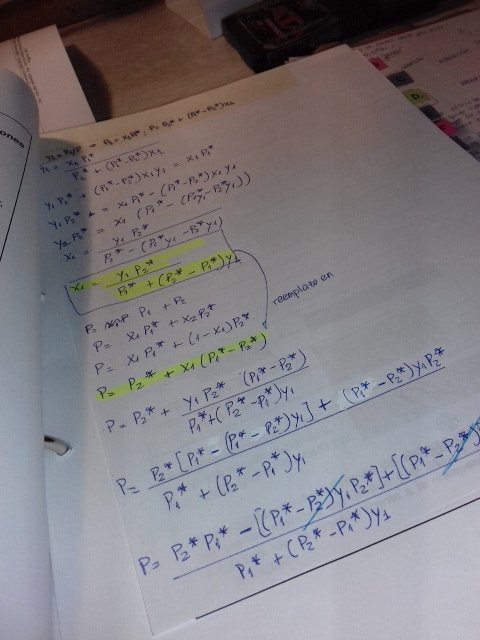 ones
y₁ = P₁/P → P₁ = x₁P₁*; P = P₂* + (P₁*-P₂*)x₁
y₁ = x₁ P₁* / P₂* + (P₁*-P₂*)x₁
y₁ P₂* + (P₁*-P₂*) x₁y₁ = x₁ P₁*
y₁ P₂* = x₁ P₁* - (P₁*-P₂*) x₁ y₁
y₁ P₂* = x₁ (P₁* - (P₁*y₁ - P₂*y₁))
x₁ = y₁ P₂* / P₁* - (P₁*y₁ - P₂*y₁)
x₁ = y₁ P₂* / P₁* + (P₂* - P₁*) y₁
P₁ + P₂
reemplazo en
P = x₁P₁* + x₂P₂*
P = x₁P₁* + (1-x₁)P₂*
P = P₂* + x₁(P₁*-P₂*)
P = P₂* + y₁ P₂* (P₁*-P₂*) / P₁* + (P₂*-P₁*)y₁
P = P₂* [P₁* - (P₁* - P₂*)y₁] + (P₁* - P₂*) y₁P₂* / P₁* + (P₂* - P₁*)y₁
P = P₂* P₁* - [(P₁*-P₂*)y₁P₂*] + [(P₁*-P₂*) / P₁* + (P₂* - P₁*)y₁